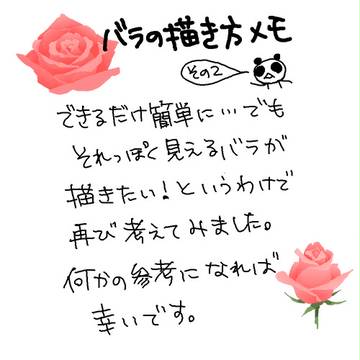 バラの描き方メモ
その2
できるだけ簡単に…でも
それっぽく見えるバラが
描きたい!というわけで
再び考えてみました。
何かの参考になれば
幸いです。